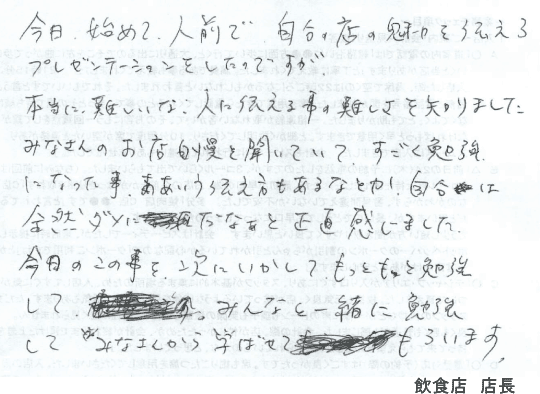 今日、始めて、人前で、自分の店の魅力を伝える
プレゼンテーションをしたのですが、
本当に、難しいな、人に伝える事の難しさを知りました
みなさんのお店自慢を聞いていて、すごく勉強
になった事、ああいう伝え方もあるなとか、自分は
全然ダメだなぁと正直感じました。
今日のこの事を、次にいかして、もっともっと勉強
し、みんなと一緒に勉強
して みなさんから学ばせて もらいます。
飲食店 店長